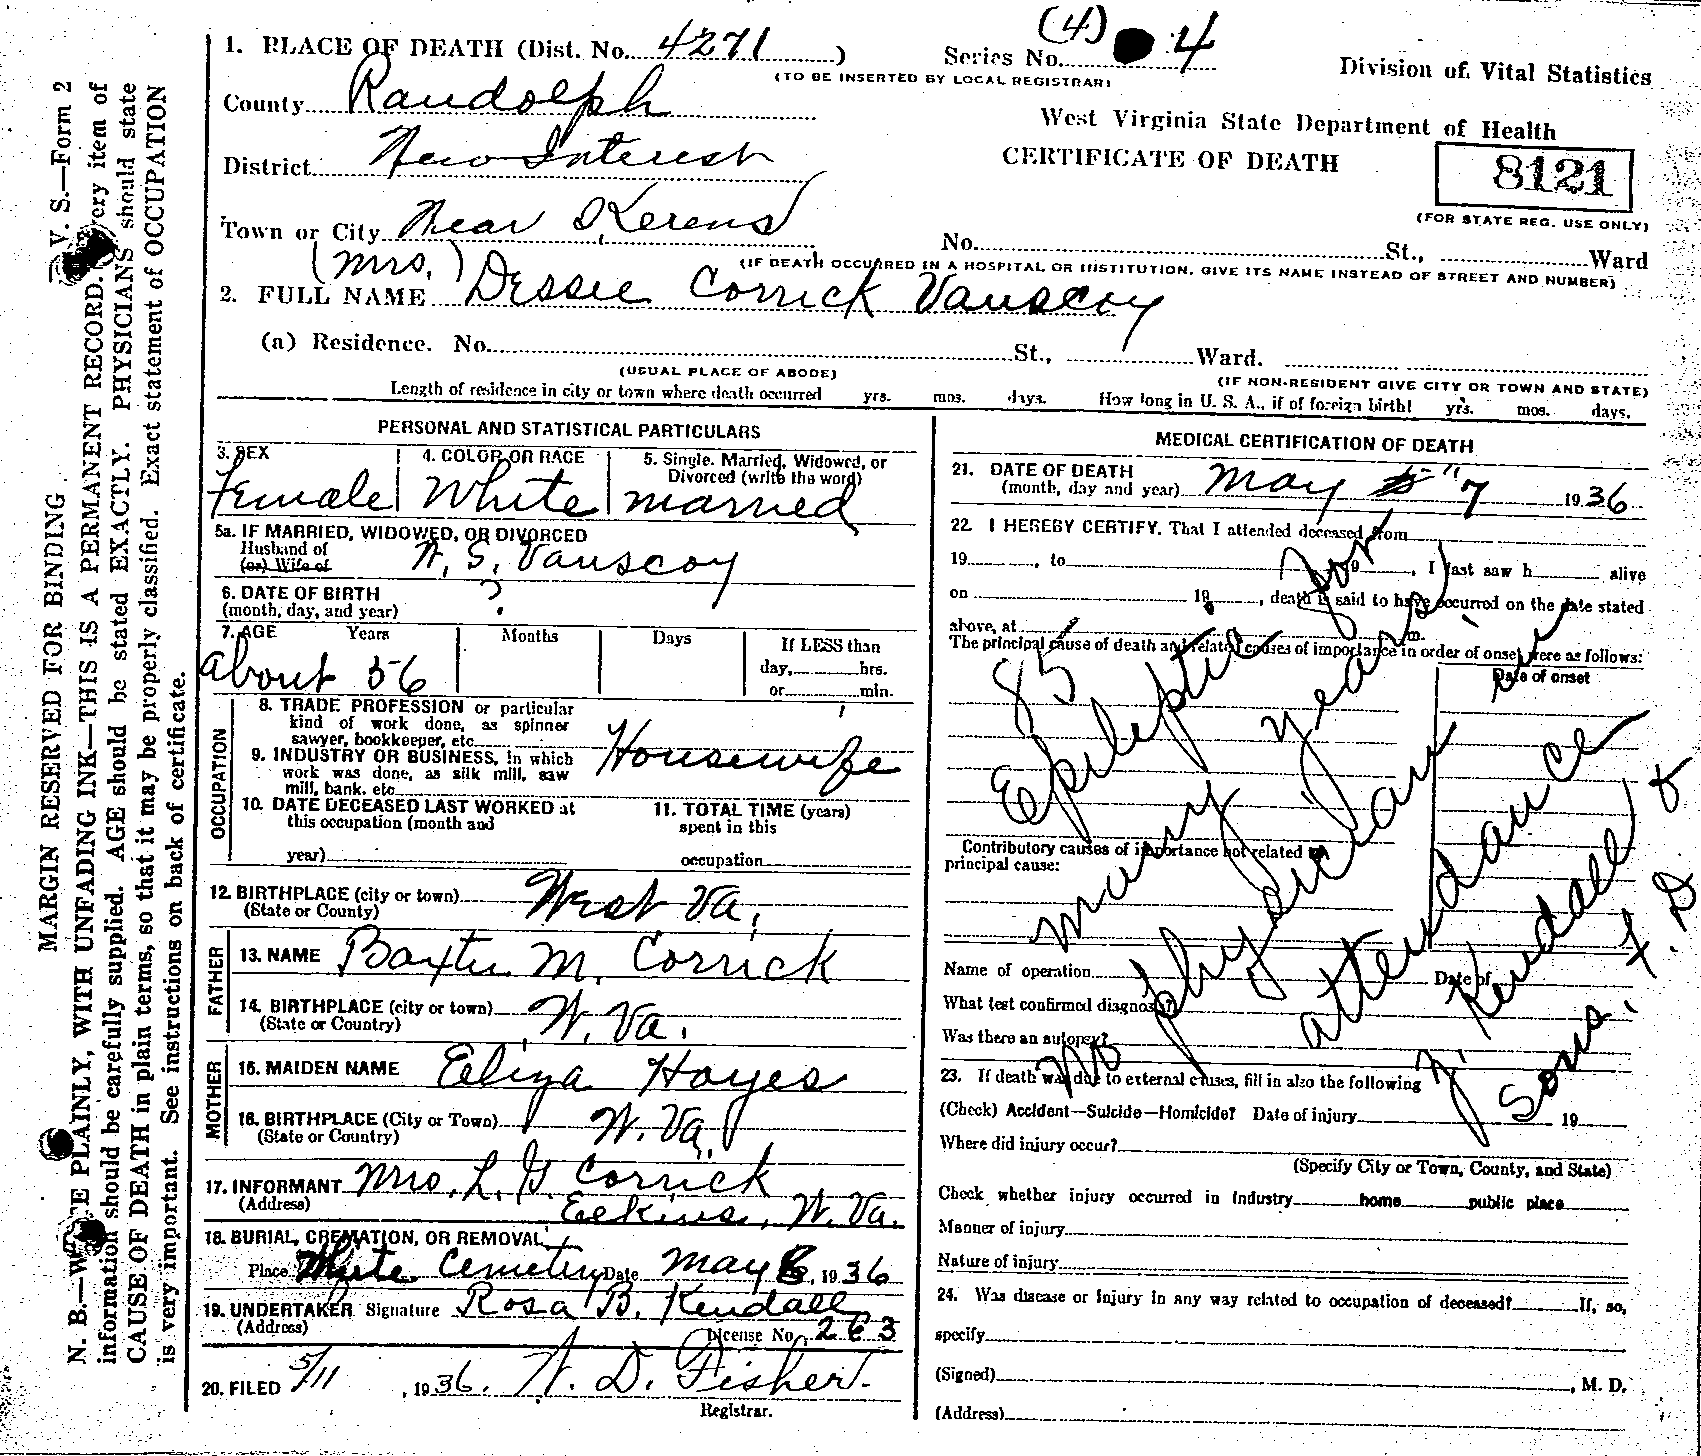 (4)
1. PLACE OF DEATH (Dist. No. 4271 ) Series No. 4
(TO BE INSERTED BY LOCAL REGISTRAR)
Division of Vital Statistics
County Randolph
West Virginia State Department of Health
District New Interest
CERTIFICATE OF DEATH
8121
(FOR STATE REG. USE ONLY)
Town or City Near Kerens
No. St., Ward
(IF DEATH OCCURRED IN A HOSPITAL OR INSTITUTION, GIVE ITS NAME INSTEAD OF STREET AND NUMBER)
(Mrs.)
2. FULL NAME Dessie Corrick Vanscoy
(a) Residence. No. St., Ward.
(USUAL PLACE OF ABODE)
(IF NON-RESIDENT GIVE CITY OR TOWN AND STATE)
Length of residence in city or town where death occurred yrs. mos. days. How long in U. S. A., if of foreign birth? yrs. mos. days.
PERSONAL AND STATISTICAL PARTICULARS
3. SEX
Female
4. COLOR OR RACE
White
5. Single, Married, Widowed, or
Divorced (write the word)
married
5a. IF MARRIED, WIDOWED, OR DIVORCED
Husband of
(or) Wife of
W. S. Vanscoy
6. DATE OF BIRTH
(month, day, and year)
?
7. AGE Years Months Days If LESS than
day, hrs.
or min.
about 56
OCCUPATION
8. TRADE PROFESSION or particular
kind of work done, as spinner
sawyer, bookkeeper, etc.
Housewife
9. INDUSTRY OR BUSINESS, in which
work was done, as silk mill, saw
mill, bank, etc
10. DATE DECEASED LAST WORKED at
this occupation (month and
year)
11. TOTAL TIME (years)
spent in this
occupation
12. BIRTHPLACE (city or town)
(State or County)
West Va.
FATHER
13. NAME Baxter M. Corrick
14. BIRTHPLACE (city or town)
(State or Country)
W. Va.
MOTHER
15. MAIDEN NAME Eliza Hayes
16. BIRTHPLACE (City or Town)
(State or Country)
W. Va
17. INFORMANT Mrs. L. G. Corrick
(Address)
Elkins, W. Va.
18. BURIAL, CREMATION, OR REMOVAL
Place White Cemetery Date May 8, 1936
19. UNDERTAKER Signature Rosa B. Kendall
(Address)
License No. 263
20. FILED 5/11, 1936. W. D. Fisher.
Registrar.
MEDICAL CERTIFICATION OF DEATH
21. DATE OF DEATH
(month, day and year) May 7 1936
22. I HEREBY CERTIFY, That I attended deceased from
19 , to 19 , I last saw h alive
on 19 , death is said to have occurred on the date stated
above, at m.
The principal cause of death and related causes of importance in order of onset were as follows:
Date of onset
85
Epileptic for
many years
No physician in
attendance
J. Kendall &
Sons, F. D
Contributory causes of importance not related to
principal cause:
Name of operation Date of
What test confirmed diagnosis?
Was there an autopsy?
23. If death was due to external causes, fill in also the following
(Check) Accident—Suicide—Homicide? Date of injury 19
Where did injury occur?
(Specify City or Town, County, and State)
Check whether injury occurred in industry home public place
Manner of injury
Nature of injury
24. Was disease or injury in any way related to occupation of deceased? If, so,
specify
(Signed) , M. D.
(Address)
V. S.—Form 2
MARGIN RESERVED FOR BINDING
N. B.—WRITE PLAINLY, WITH UNFADING INK—THIS IS A PERMANENT RECORD. Every item of
information should be carefully supplied. AGE should be stated EXACTLY. PHYSICIANS should state
CAUSE OF DEATH in plain terms, so that it may be properly classified. Exact statement of OCCUPATION
is very important. See instructions on back of certificate.